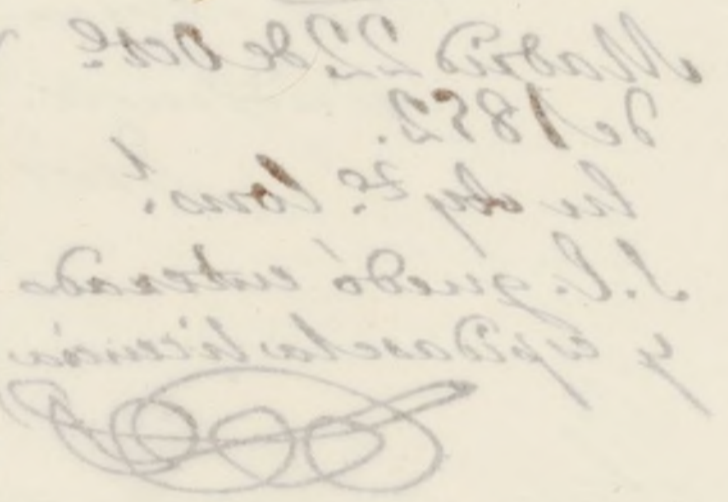 Madrid 22 de Oct.e
de 1852.
S. E. quedó enterado
y espidase la licencia